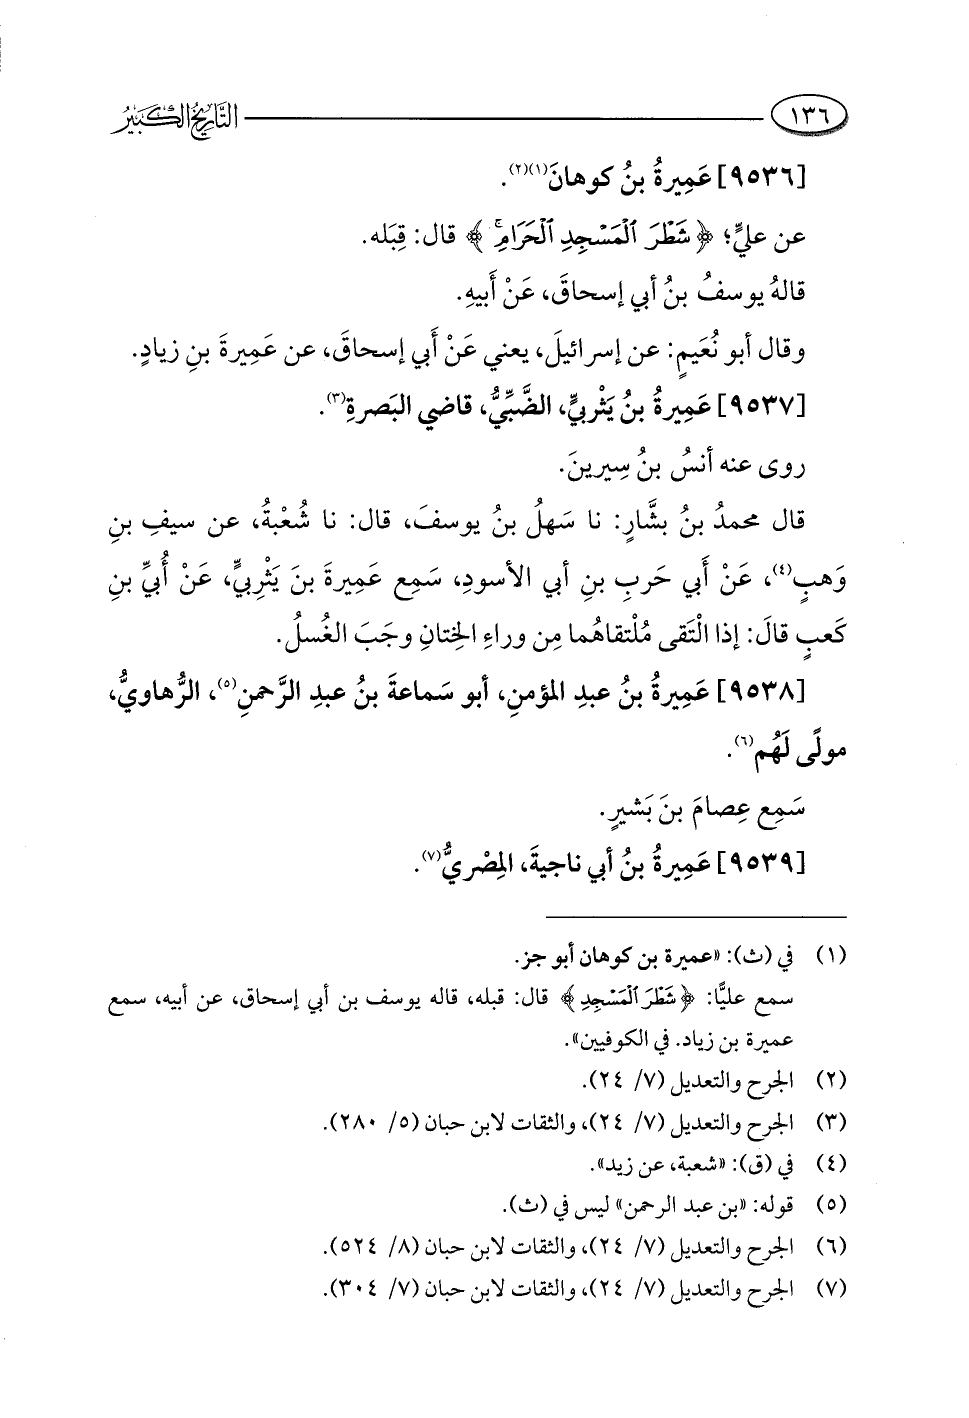 ١٣٦ التَّارِيخُ الكَبِيرُ
[٩٥٣٦] عَمِيرةُ بنُ كوهانَ(١)(٢).
عن عليٍّ؛ ﴿شَطْرَ ٱلْمَسْجِدِ ٱلْحَرَامِۚ﴾ قال: قِبَله.
قالهُ يوسفُ بنُ أبي إسحاقَ، عَنْ أَبيهِ.
وقال أبو نُعَيمٍ: عن إسرائيلَ، يعني عَنْ أَبي إسحاقَ، عن عَمِيرةَ بنِ زيادٍ.
[٩٥٣٧] عَمِيرةُ بنُ يَثْربيٍّ، الضَّبِّيُّ، قاضي البَصرةِ(٣).
روى عنه أنسُ بنُ سِيرينَ.
قال محمدُ بنُ بشَّارٍ: نا سَهلُ بنُ يوسفَ، قال: نا شُعْبةُ، عن سيفِ بنِ
وَهبٍ(٤)، عَنْ أَبي حَربِ بنِ أبي الأسودِ، سَمِع عَمِيرةَ بنَ يَثْرِبيٍّ، عَنْ أُبيِّ بنِ
كَعبٍ قالَ: إذا الْتَقى مُلْتقاهُما مِن وراءِ الخِتانِ وجَبَ الغُسلُ.
[٩٥٣٨] عَمِيرةُ بنُ عبدِ المؤمنِ، أبو سَماعةَ بنُ عبدِ الرَّحمنِ(٥)، الرُّهاويُّ،
مولًى لَهُم(٦).
سَمِع عِصامَ بنَ بَشيرٍ.
[٩٥٣٩] عَمِيرةُ بنُ أبي ناجيةَ، المِصْريُّ(٧).
(١) في (ث): «عميرة بن كوهان أبو جز.
سمع عليًّا: ﴿شَطْرَ ٱلْمَسْجِدِ﴾ قال: قبله، قاله يوسف بن أبي إسحاق، عن أبيه، سمع
عميرة بن زياد. في الكوفيين».
(٢) الجرح والتعديل (٧/ ٢٤).
(٣) الجرح والتعديل (٧/ ٢٤)، والثقات لابن حبان (٥/ ٢٨٠).
(٤) في (ق): «شعبة، عن زيد».
(٥) قوله: «بن عبد الرحمن» ليس في (ث).
(٦) الجرح والتعديل (٧/ ٢٤)، والثقات لابن حبان (٨/ ٥٢٤).
(٧) الجرح والتعديل (٧/ ٢٤)، والثقات لابن حبان (٧/ ٣٠٤).